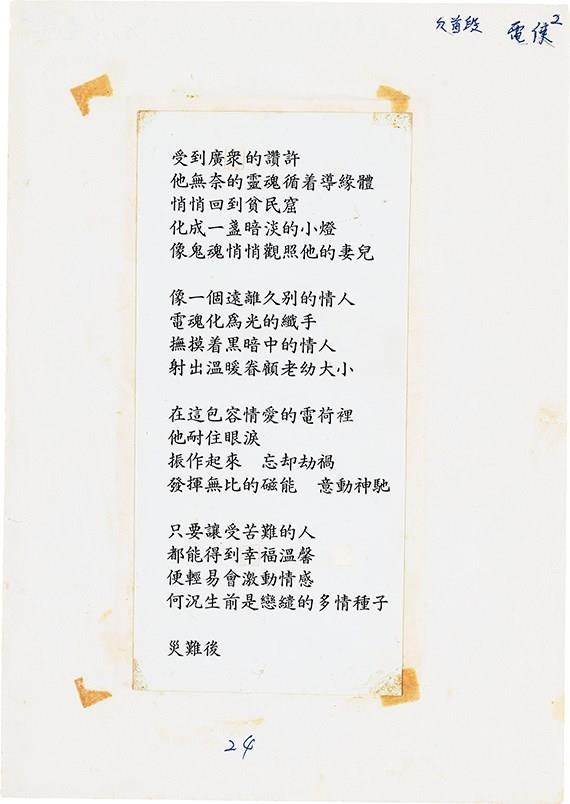 欠首段 電俠2
受到廣衆的讚許
他無奈的靈魂循着導緣體
悄悄回到貧民窟
化成一盞暗淡的小燈
像鬼魂悄悄觀照他的妻兒
像一個遠離久别的情人
電魂化爲光的纖手
撫摸着黑暗中的情人
射出溫暖眷顧老幼大小
在這包容情愛的電荷裡
他耐住眼淚
振作起來　忘却劫禍
發揮無比的磁能　意動神馳
只要讓受苦難的人
都能得到幸福溫馨
便輕易會激動情感
何況生前是戀繾的多情種子
災難後
24